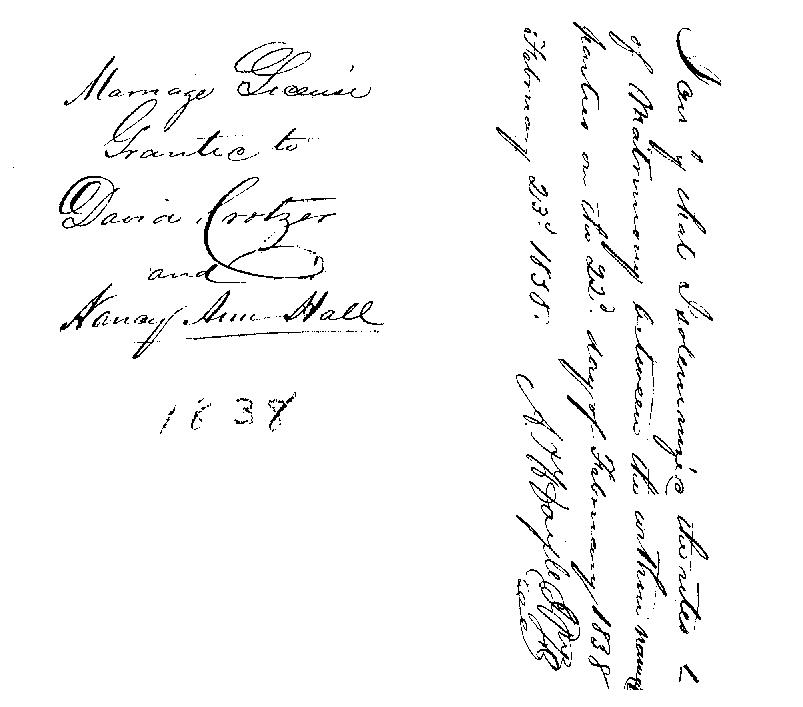 Marriage License
Granted to
David Crotzer
and
Nancy Ann Hall
1838
that I solemnized the rites
of Matrimony between the within named
parties on the 22d. day of February 1838
February 23d. 1838.